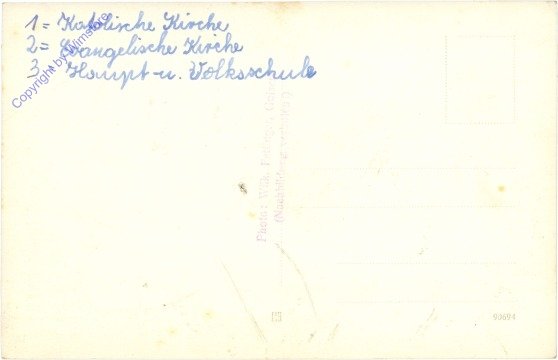 1 = Katolische Kirche
2 = Evangelische Kirche
3 Haupt-u. Volksschule
Copyright by Wimstore
Photo: Wilh.
90694